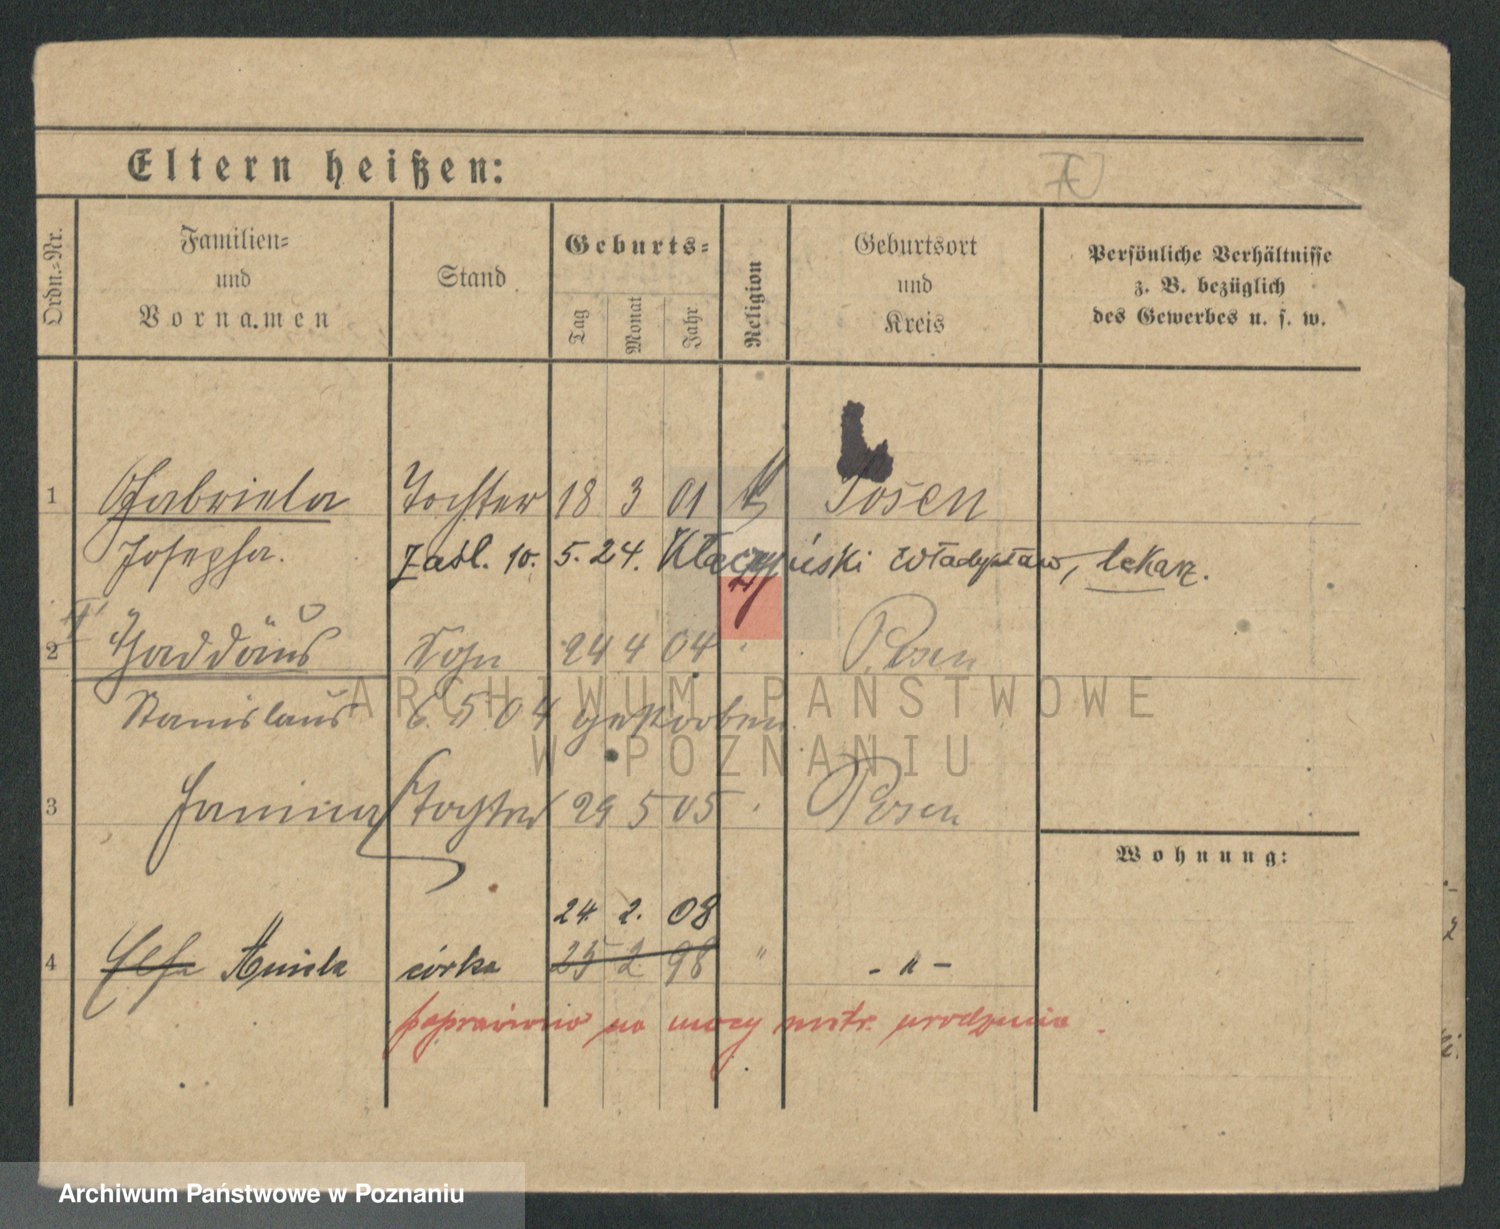 Eltern heißen:
Ordn.=Nr.
Familien=
und
Vornamen
Stand
Geburts=
Tag
Monat
Jahr
Religion
Geburtsort
und
Kreis
Persönliche Verhältnisse
z. B. bezüglich
des Gewerbes u. s. w.
1 Gabriela Tochter 18 3 01 k Posen
Josepha. Zaśl. 10. 5. 24. Kłaczyński Władysław, lekarz.
2 Thaddäus Sohn 24 4 04 " Posen
Stanislaus 6 5 04 gestorben.
3 Janina Tochter 29 5 05 " Posen
Wohnung:
24. 2. 08
4 Elsa Aniela córka 25 2 98 " - " -
poprawiono na mocy metr. urodzenia.
ARCHIWUM PAŃSTWOWE
W POZNANIU
Archiwum Państwowe w Poznaniu